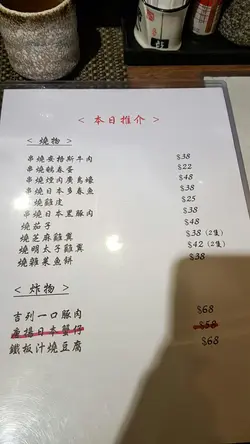 < 本日推介 >
< 燒物 >
串燒安格斯牛肉 $38
串燒鵪春蛋 $22
串燒煙肉廣島蠔 $48
串燒日本多春魚 $38
燒雞皮 $25
串燒日本黑豚肉 $38
燒茄子 $48
燒芝麻雞翼 $38 (2隻)
燒明太子雞翼 $42 (2隻)
燒雜菜魚餅 $38
< 炸物 >
吉列一口豚肉 $68
唐揚日本蟹仔 $58
鐵板汁燒豆腐 $68